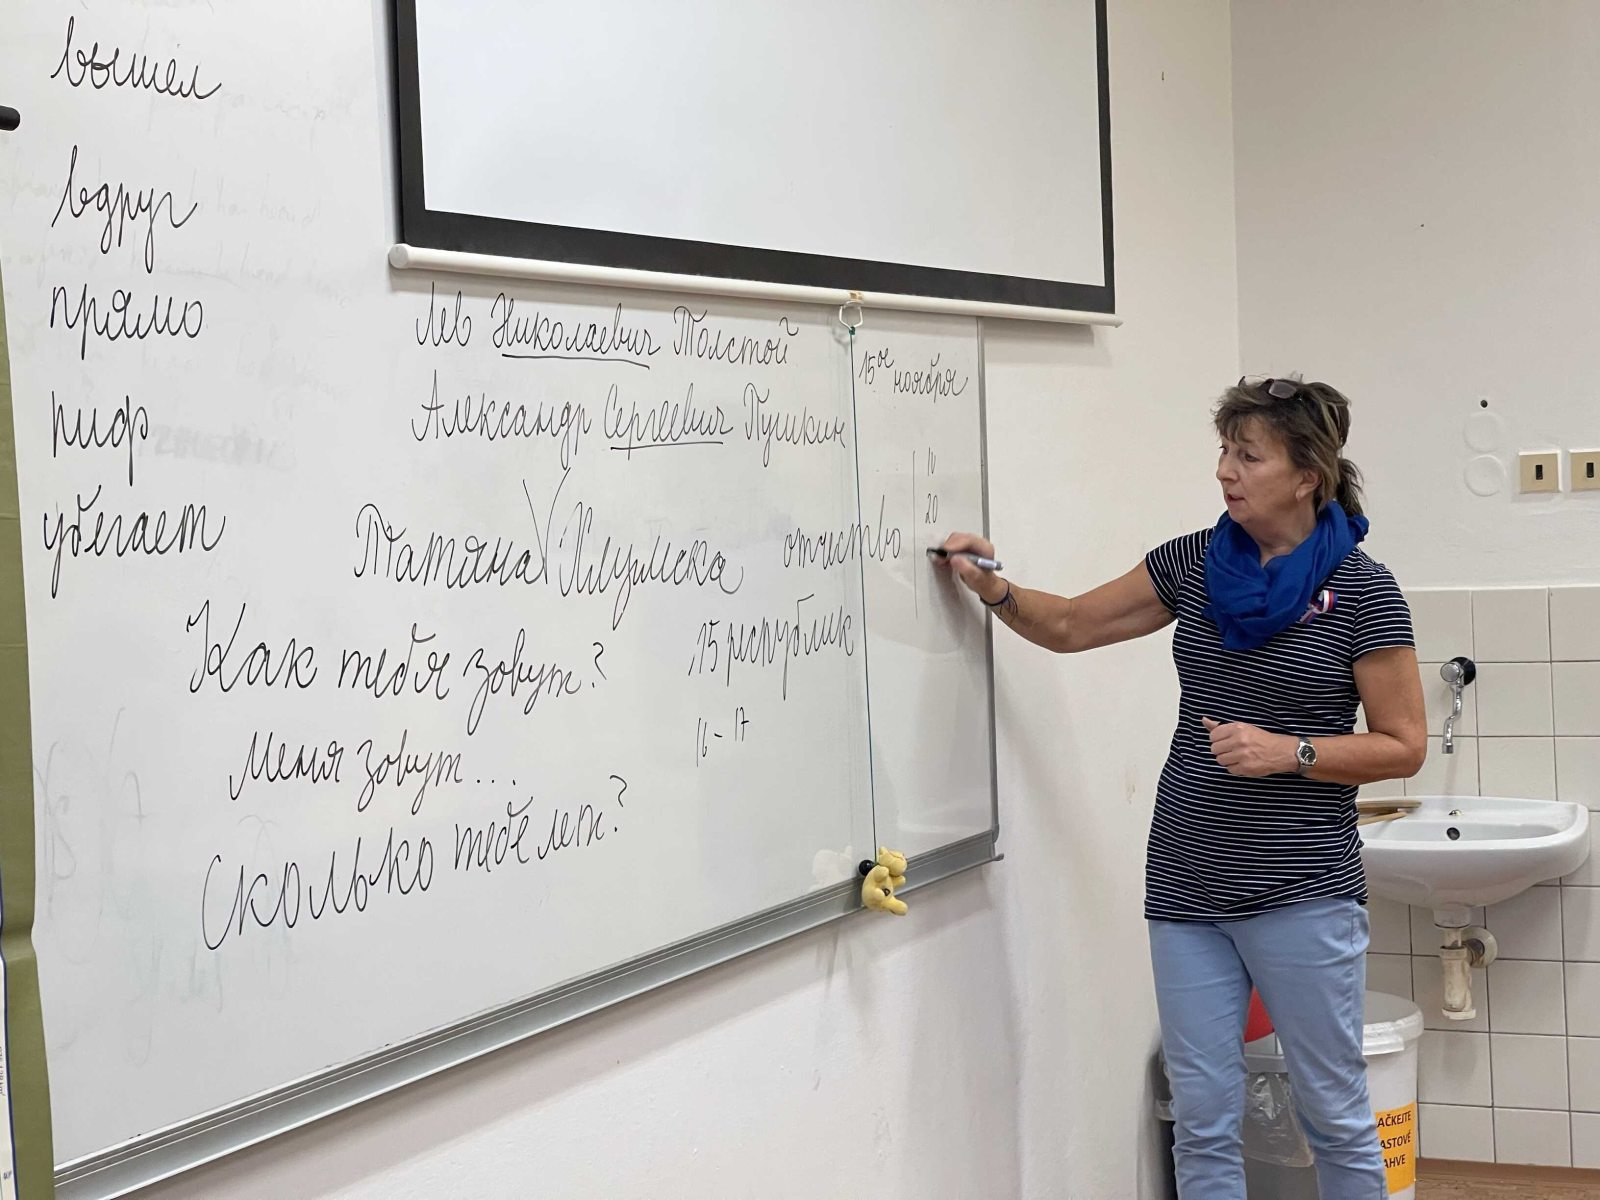 вышел
вдруг
прямо
риф
убегает
Лев Николаевич Толстой
Александр Сергеевич Пушкин
Татяна Хлумска отчество
Как тебя зовут?
Меня зовут...
Сколько тебе лет?
15 республик
16-17
15ое
ноября
10
20
AČKEJTE
ASTOVÉ
AHVE